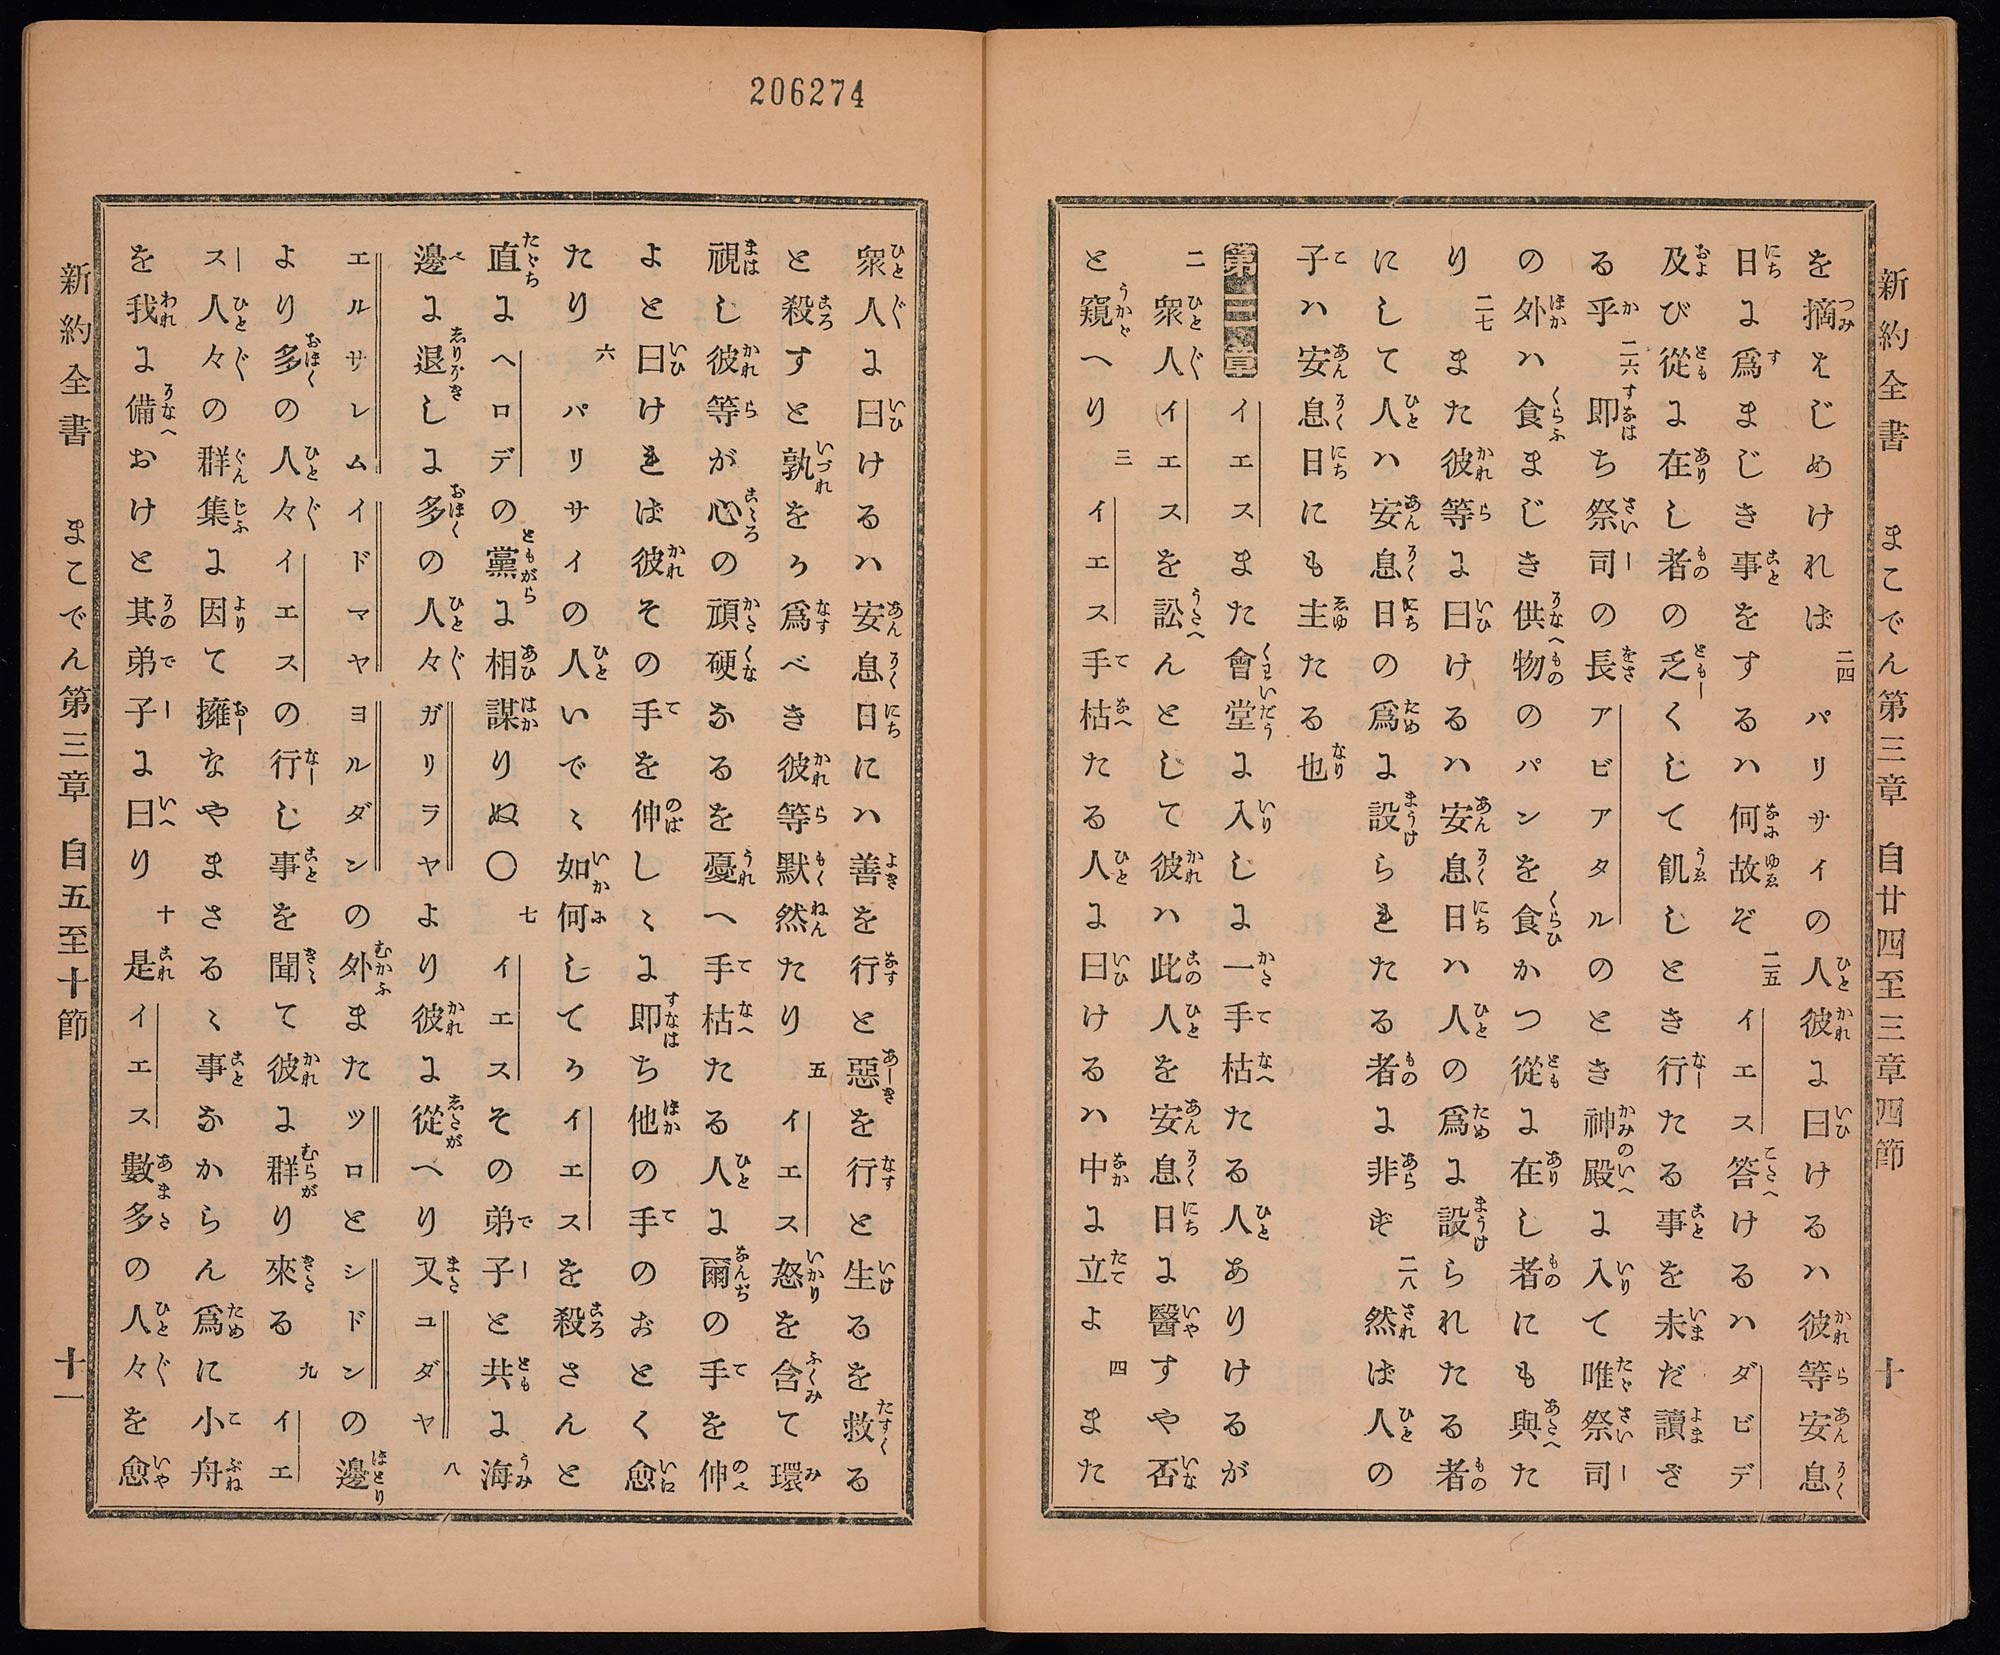 新約全書 まこでん第三章 自廿四至三章四節 十
を摘はじめければ 二四 パリサイの人彼に曰けるハ彼等安息
日に爲まじき事をするハ何故ぞ 二五 イエス答けるハダビデ
及び從に在し者の乏くして飢しとき行たる事を未だ讀ざ
る乎 二六 即ち祭司の長アビアタルのとき神殿に入て唯祭司
の外ハ食まじき供物のパンを食かつ從に在し者にも與た
り 二七 また彼等に曰けるハ安息日ハ人の爲に設られたる者
にして人ハ安息日の爲に設られたる者に非ず 二八 然ば人の
子ハ安息日にも主たる也
第三章 イエスまた會堂に入しに一手枯たる人ありけるが
二 衆人イエスを訟んとして彼ハ此人を安息日に醫すや否
と窺へり 三 イエス手枯たる人に曰けるハ中に立よ 四 また
206274
衆人に曰けるハ安息日にハ善を行と惡を行と生るを救る
と殺すと孰をか爲べき彼等默然たり 五 イエス怒を含て環
視し彼等が心の頑硬なるを憂へ手枯たる人に爾の手を伸
よと曰ければ彼その手を伸しゝに即ち他の手のおとく愈
たり 六 パリサイの人いでゝ如何してかイエスを殺さんと
直にヘロデの黨に相謀りぬ〇 七 イエスその弟子と共に海
邊に退しに多の人々ガリラヤより彼に從へり又ユダヤ 八
エルサレムイドマヤヨルダンの外またツロとシドンの邊
より多の人々イエスの行し事を聞て彼に群り來る 九 イエ
ス人々の群集に因て擁なやまさるゝ事なからん爲に小舟
を我に備おけと其弟子に曰り 十 是イエス數多の人々を愈
新約全書 まこでん第三章 自五至十節 十一